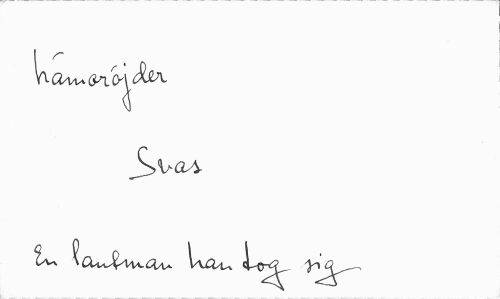 hämoröjder
Svas
En lantman han tog sig